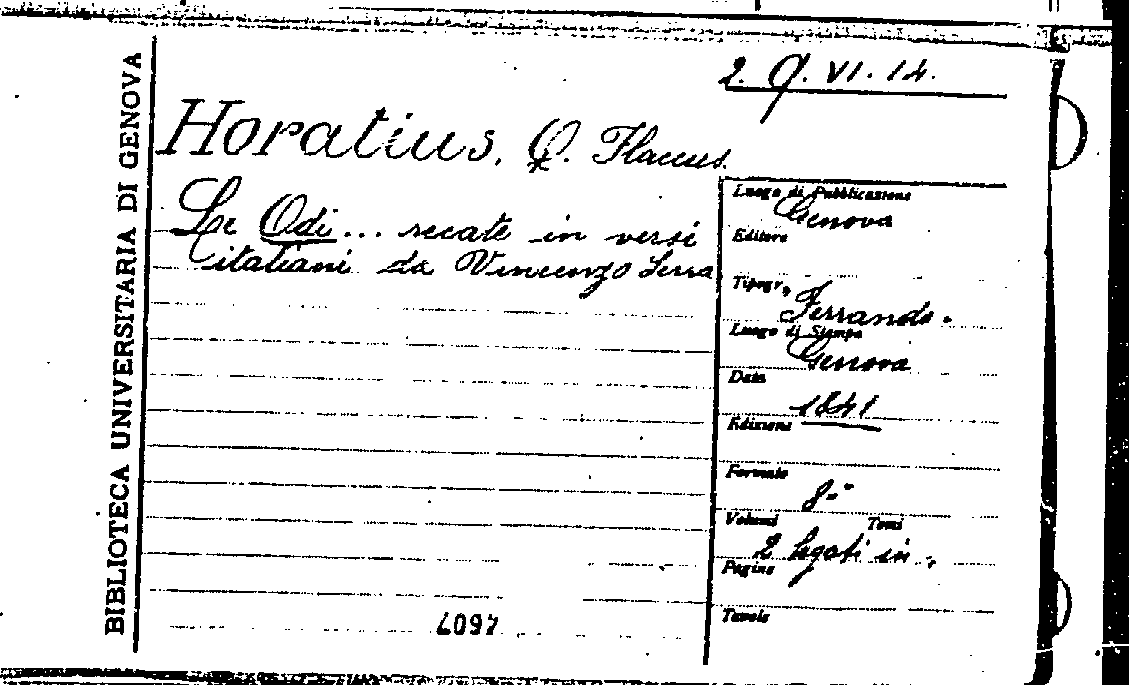 BIBLIOTECA UNIVERSITARIA DI GENOVA
2. Q. VI. 14.
Horatius, Q. Flaccus.
Le Odi... recate in versi
italiani da Vincenzo Serra
Luogo di Pubblicazione
Genova
Editore
Tipogr.
Ferrando.
Luogo di Stampa
Genova
Data
1841
Edizione
Formato
8-°
Volumi Tomi
2 legati in
Pagine
Tavole
4097